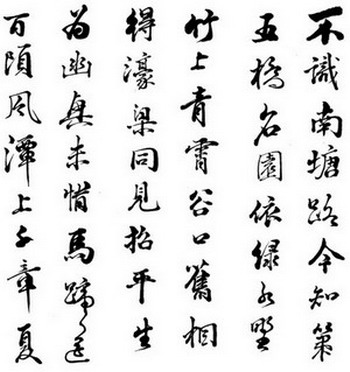 不識南塘路今知第
五橋名園依緑水野
竹上青霄谷口舊相
得濠梁同見招平生
為幽興未惜馬蹄遥
百頃風潭上千章夏